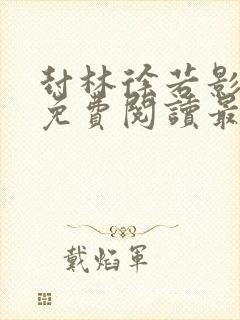 封林徐若影
免費閱讀最
戴焰軍